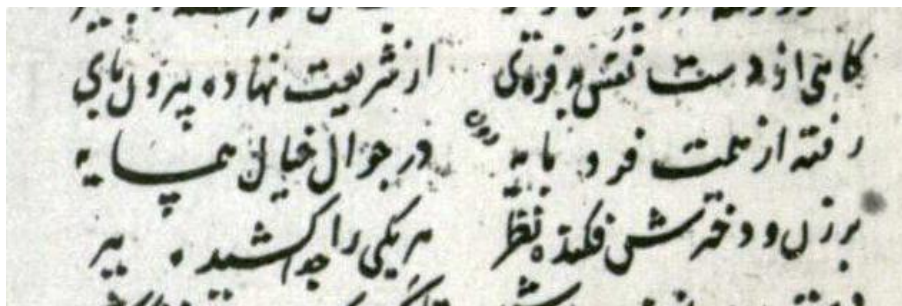 گاهی از دست نفس بد فرمای از شریعت نهاده بیرون پای
رفته از همت فرو مایه درون در جوال خیال همسایه
بر زن و دخترش فکنده نظر هر یکی را جدا کشیده ببر